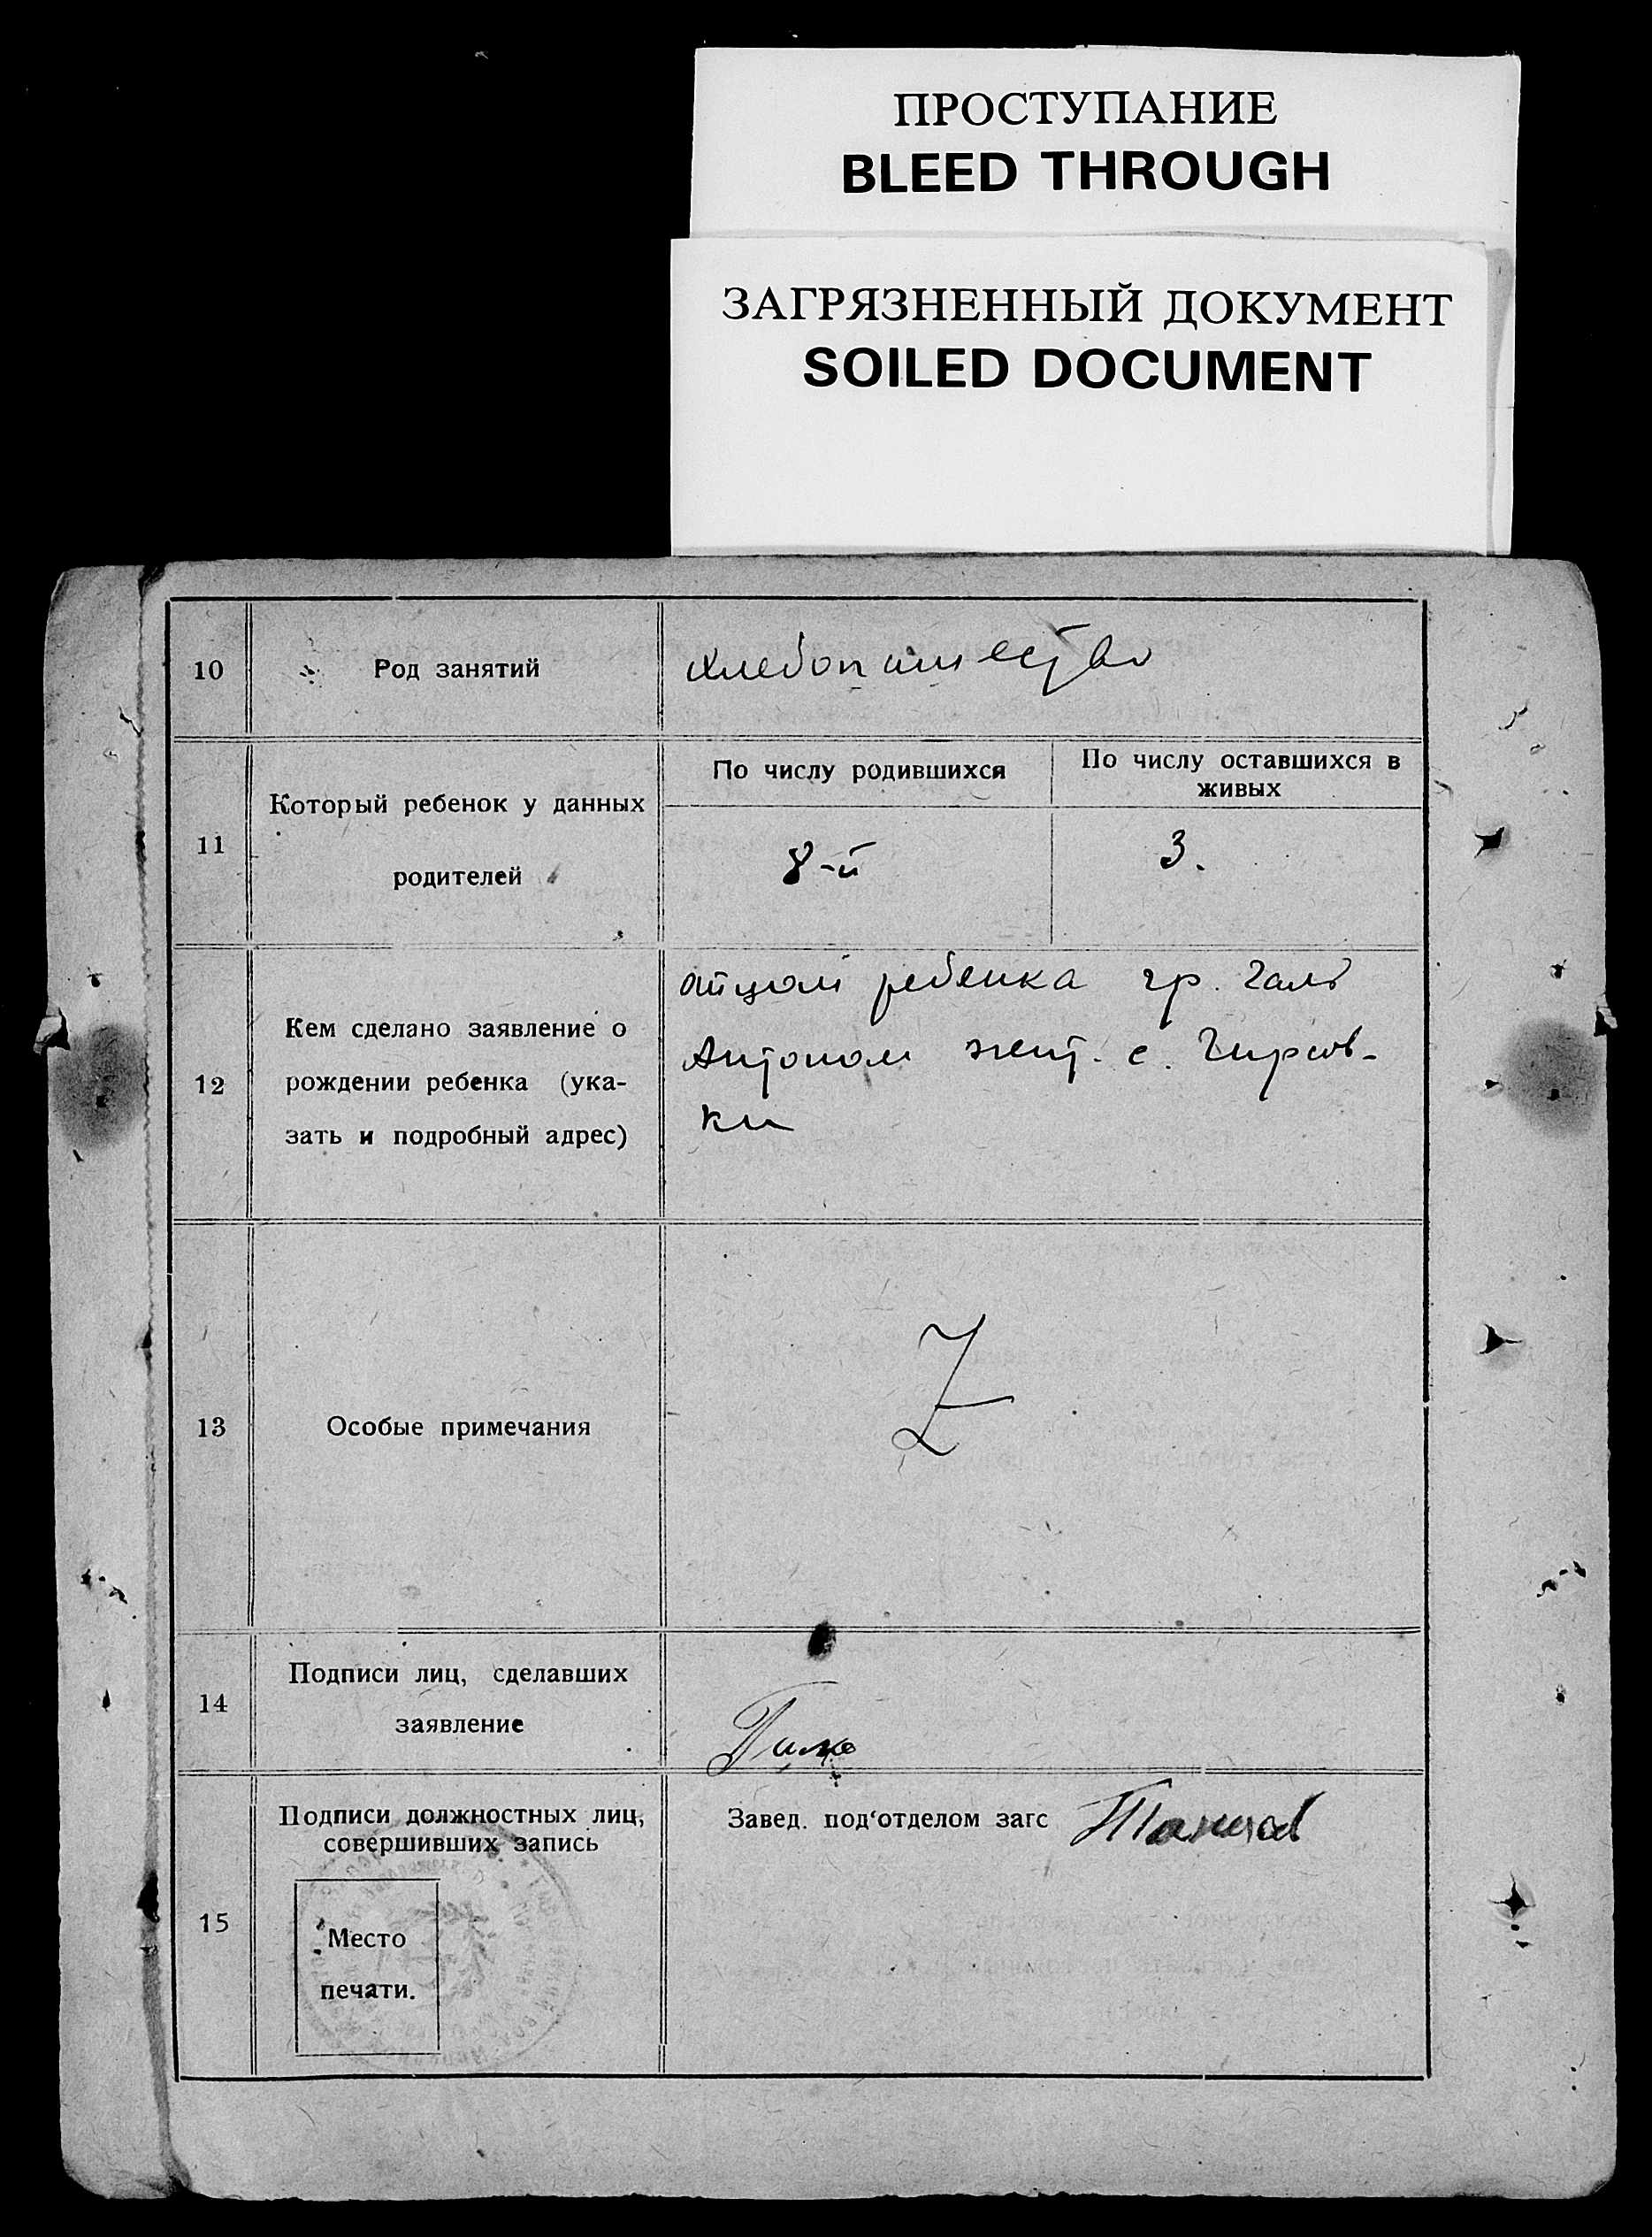 ПРОСТУПАНИЕ
BLEED THROUGH
ЗАГРЯЗНЕННЫЙ ДОКУМЕНТ
SOILED DOCUMENT
10 Род занятий хлебопашество
11 Который ребенок у данных родителей
По числу родившихся
По числу оставшихся в живых
8-й 3.
12 Кем сделано заявление о
рождении ребенка (ука-
зать и подробный адрес)
отцом ребенка гр.
Антоном жит. с.
ки
13 Особые примечания Z
14 Подписи лиц, сделавших
заявление
15 Подписи должностных лиц,
совершивших запись
Место
печати.
Завед. под'отделом загс